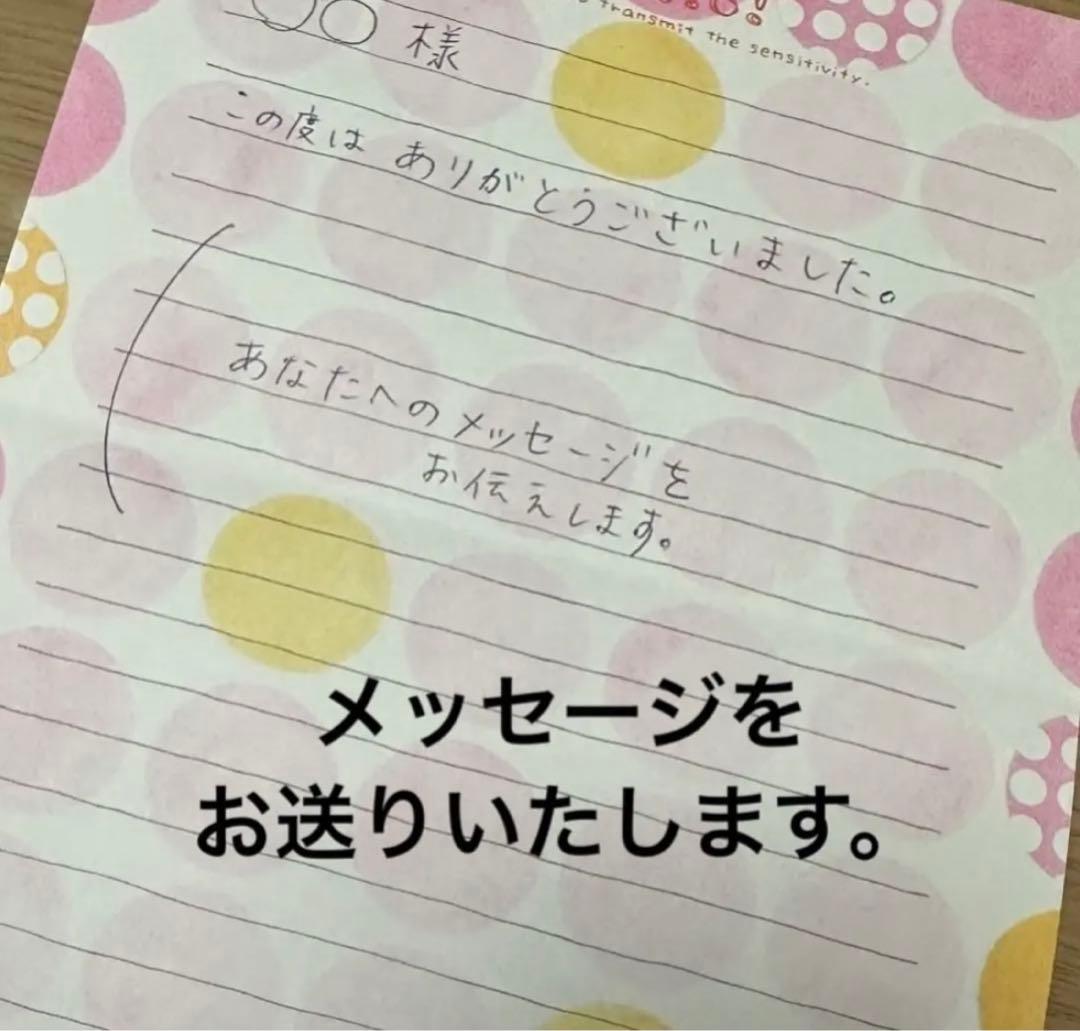 transmit the sensitivity.
○○ 様
この度は ありがとうございました。
あなたへのメッセージを
お伝えします。
メッセージを
お送りいたします。